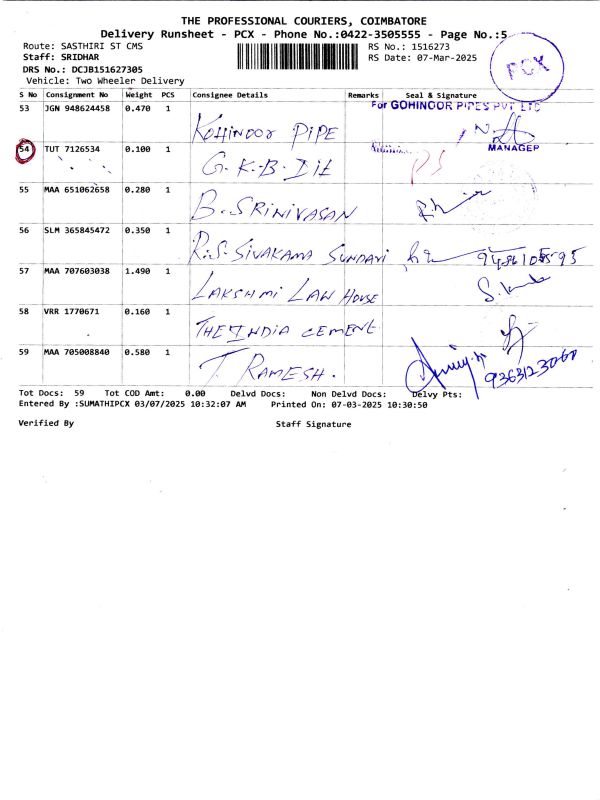 THE PROFESSIONAL COURIERS, COIMBATORE
Delivery Runsheet - PCX - Phone No.:0422-3505555 - Page No.:5
Route: SASTHIRI ST CMS
RS No.: 1516273
Staff: SRIDHAR
RS Date: 07-Mar-2025
DRS No.: DCJB151627305
Vehicle: Two Wheeler Delivery
PCX
S No Consignment No Weight PCS Consignee Details Remarks Seal & Signature
For GOHINOOR PIPES PVT LTD
53 JGN 948624458 0.470 1 KOHINOOR PIPE
MANAGER
54 TUT 7126534 0.100 1 G.K.B.
55 MAA 651062658 0.280 1 B. SRINIVASAN
56 SLM 365845472 0.350 1 R.S. SIVAKAMA SUNDARI
57 MAA 707603038 1.490 1 LAKSHMI LAW HOUSE
58 VRR 1770671 0.160 1 THE INDIA CEMENT
59 MAA 705008840 0.580 1 T. RAMESH.
Tot Docs: 59 Tot COD Amt: 0.00 Delvd Docs: Non Delvd Docs: Delvy Pts:
Entered By :SUMATHIPCX 03/07/2025 10:32:07 AM Printed On: 07-03-2025 10:30:50
Verified By Staff Signature